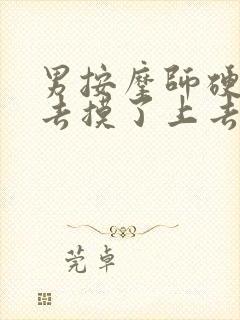 男按摩师硬
去摸了上去
莞卓